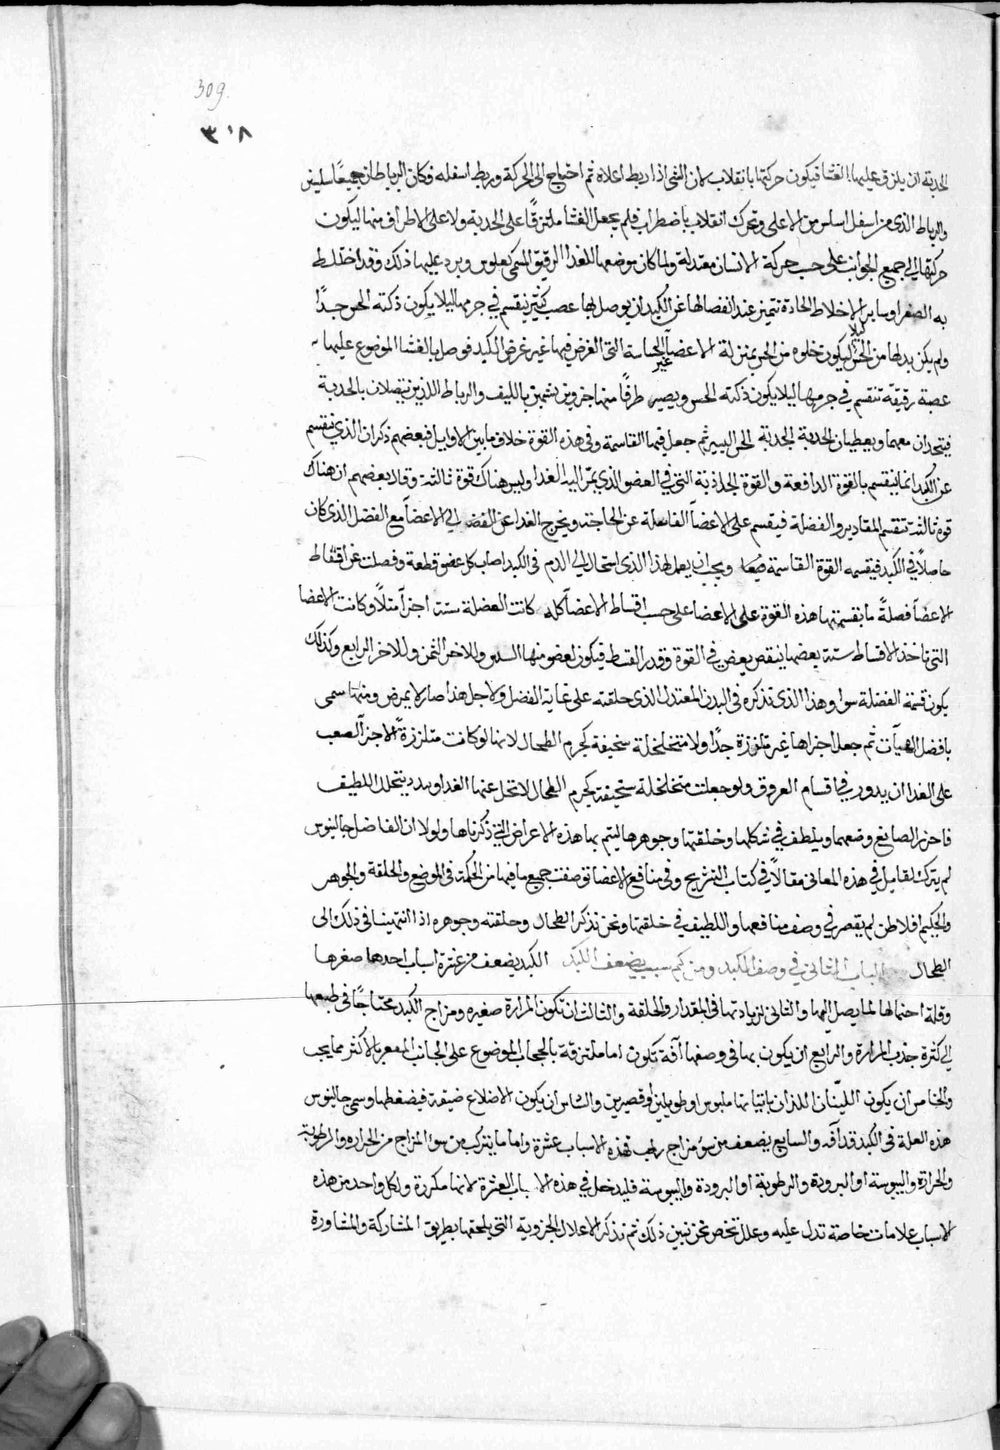 309.
٣٠٨
الحدبة ان يلزق عليها الغشا فيكون حركتها بانقلاب لان الشي اذا ربط اعلاه ثم احتاج الى الحركة وربط اسفله وكان الرباطان جميعًا سلسين
والرباط الذي من اسفل اسلس من الاعلى وتحرك انقلاب باضطراب فلم يجعل الغشا ملتزقًا على الحدبة ولا على الاطراف منها ليكون
حركتها الى جميع الجوانب على حسب حركة الانسان معتدلة ولما كان موضعها للغذا الرقيق المسمى كيلوس ويرد عليها ذلك وقد اختلط
به الصفرا وساير الاخلاط الحادة تتميز عند انفصالها عن الكبد ان يوصل بها عصب كثير ينقسم في جرمها ليلا يكون ذكية الحس جدًا
ولم يكن بد لها من الحس ليلا يكون تخلوه من الحس بمنزلة الاعضا غير الحساسة التي الغرض فيها غير غرض الكبد فوصل بالغشا الموضوع عليها
عصبة رقيقة تنقسم في جرمها ليلا يكون ذكية الحس ويصير طرفًا منها جزوين بالليف والرباط اللذين يتصلان بالحدبة
فيتحدان معهما ويعطيان الحدبة الحس اليسير ثم جعل فيها القاسمة وفي هذه القوة خلاف ما بين الاوايل فبعضهم ذكر ان الذي ينقسم
عن الكبد انما ينقسم بالقوة الدافعة والقوة الجاذبة التي في العضو الذي يمر اليه الغذا وليس هناك قوة ثالثة وقال بعضهم ان هناك
قوة ثالثة تقسم المقادير والفضلة فيقسم على الاعضا الفاضلة عن الحاجة ويخرج الغذا عن الفضل الى الاعضا مع الفضل الذي كان
حاصلًا في الكبد فيقسمه القوة القاسمة ويجب ان يعمل لهذا الذي استحال الى الدم في الكبد اصاب كل عضو قطعة وفصلت عن اقساط
الاعضا فضلةً ما يقسمها هذه القوة على الاعضا على حسب اقساط الاعضا كله كانت الفضلة ستة اجزا مثلًا وكانت الاعضا
التي تاخذ الاقساط ستة بعضها ينقص بعض في القوة وقدر القسط فيكون لعضو منها السدس وللاخر الثمن وللاخر الرابع وكذلك
يكون قسمة الفضلة سوا وهذا الذي نذكره في البدن المعتدل الذي خلقته على غاية الفضل ولاجل هذا صار لا يمرض ومتى سمى
بافضل الهيآت ثم جعل اجزاها غير متلززة جدًا ولا متخلخلة سخيفة كجرم الطحال لانها لو كانت متلززة الاجزا لصعب
على الغذا ان يدور في اقسام العروق ولو جعلت متخلخلة سخيفة كجرم الطحال لانحل عنها الغذا وبدد بتحلل اللطيف
فاحرز الصانع وضعها ويلطف في شكلها وخلقتها وجوهرها ليتم بها هذه الاعراض التي ذكرناها ولولا ان الفاضل جالينوس
لم يترك لقايل في هذه المعاني مقالًا في كتاب التشريح وفي منافع الاعضا لوصفت جميع ما فيها من الحكمة في الموضع والخلقة والجوهر
والحكيم افلاطن لم يقصر في وصف منافعها واللطيف في خلقتها ونحن نذكر الطحال وخلقته وجوهره اذا انتهينا في ذلك الى
الطحال الباب الثاني في وصف الكبد ومن كم سبب يضعف الكبد الكبد يضعف من عشرة اسباب احدها صغرها
وقلة احتمالها لما يصل اليها والثاني لزيادتها في المقدار والخلقة والثالث ان تكون المرارة صغيره ومزاج الكبد محتاجًا في طبعها
الى كثرة جذب المرارة والرابع ان يكون بها في وضعها آفة تكون اما ملتزقة بالحجاب الموضوع على الجانب المقعر بالاكثر مما يجب
والخامس ان يكون اللتان اللذان ياتيانها ملبوس او طويلين او قصيرين والسادس ان يكون الاضلاع ضيقة فيضغطها وسمى جالينوس
هذه العلة في الكبد قد آفه والسابع يضعف من سؤ مزاج رطب فهذه الاسباب عشرة واما ما يتركب من سؤ المزاج من الحراره والرطوبة
والحرارة واليبوسة او البرودة والرطوبة او البرودة واليبوسة فليدخل في هذه الاسباب العشرة لانها مكررة ولكل واحد من هذه
الاسباب علامات خاصة تدل عليه وعلل تخص نحن نبين ذلك ثم نذكر الاعلال الجزوية التي يلحقها بطريق المشاركة والمشاورة